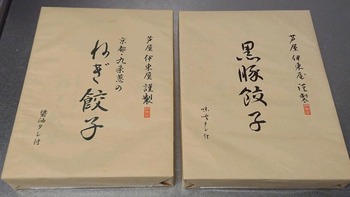 芦屋 伊東屋 謹製
京都・九条葱の
ねぎ餃子
醤油タレ付
芦屋 伊東屋 謹製
黒豚餃子
味噌タレ付